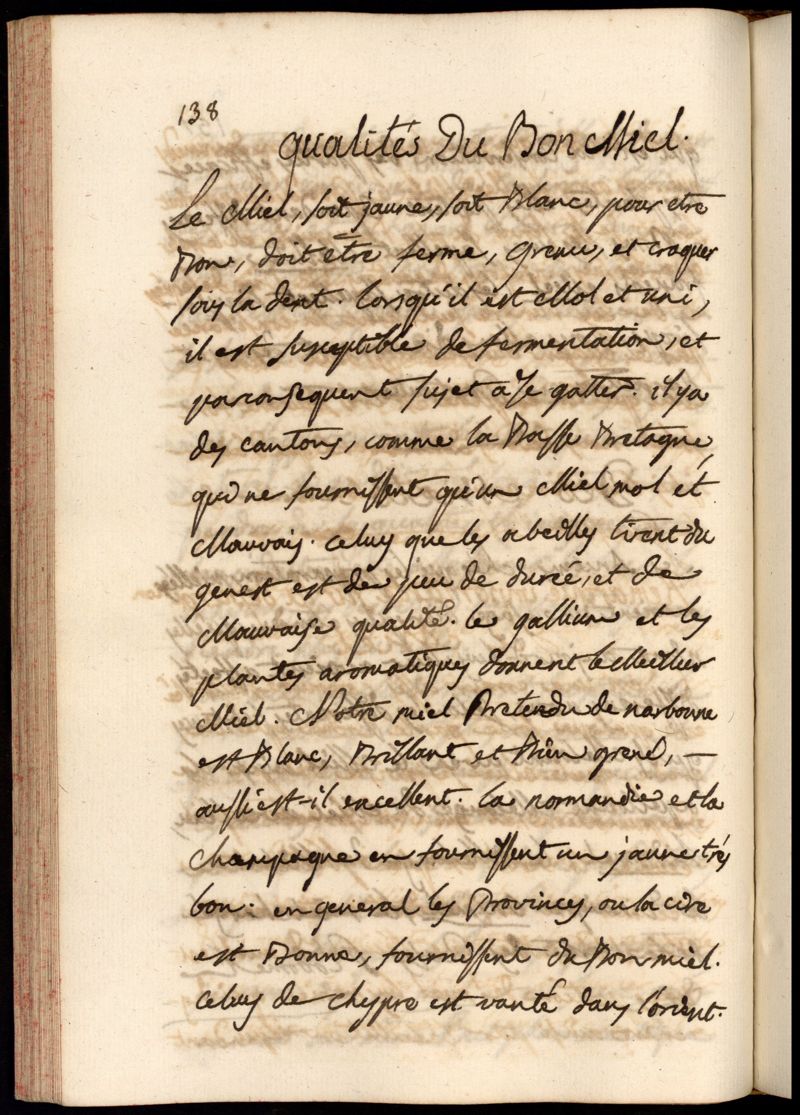 138
qualités Du Bon Miel.
Le Miel, soit jaune, soit Blanc, pour etre
Bon, doit être ferme, Grenu, et craquer
sous la dent. lorsqu'il est Mol et uni,
il est susceptible de fermentation, et
par consequent sujet a se gatter. il y a
des cantons, comme la Basse Bretagne,
qui ne fournissent qu'un Miel mol et
Mauvais. celuy que les abeilles tirent du
genest est de peu de durée, et de
Mauvaise qualité. le gallium et les
plantes aromatiques donnent le Meilleur
Miel. Notre miel Pretendu de narbonne
est Blanc, Brillant et Bien grené, —
aussi est-il excellent. la normandie et la
champagne en fournissent un jaune trés
bon. en general les Provinces, ou la cire
est Bonne, fournissent du Bon miel.
Celuy de chypre est vanté dans l'orient.